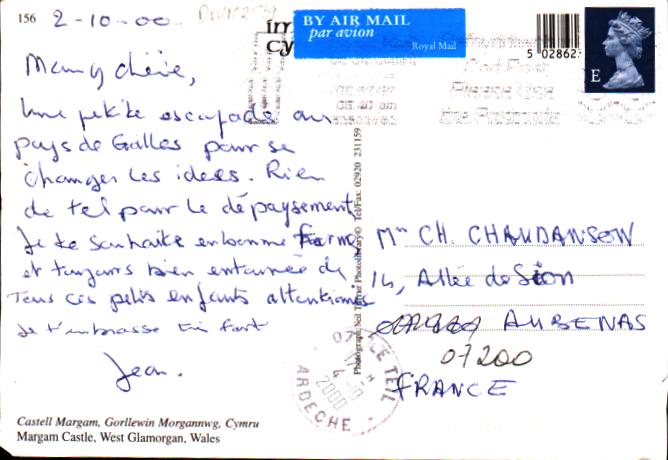 156
2-10-00
BY AIR MAIL
par avion
Royal Mail
5 02862
E
Mamy chérie,
Une petite escapade au
pays de Galles pour se
changer les idées. Rien
de tel pour le dépaysement
Je te souhaite en bonne forme
et toujours bien entourée de
Tous ces petits enfants attentionnés
Je t'embrasse très fort
Jean.
Castell Margam, Gorllewin Morgannwg, Cymru
Margam Castle, West Glamorgan, Wales
Photograph Neil Turner Photolibrary© Tel/Fax: 02920 231159
CH. CHAUDANSON
14, Allée de Sion
AUBENAS
07200
FRANCE
07 LE TEIL
4-10
2000
ARDECHE